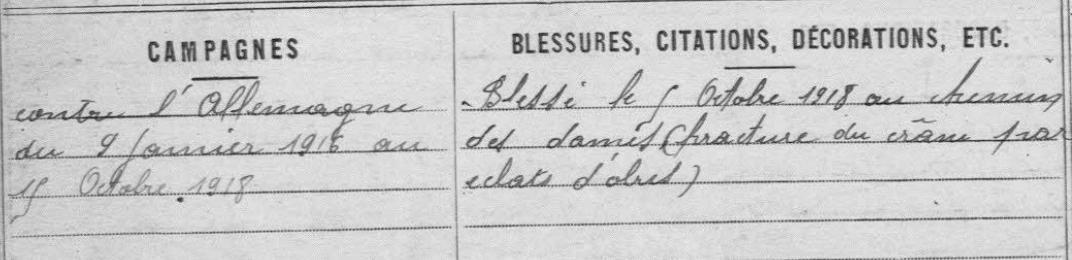 CAMPAGNES
contre l'Allemagne
du 9 Janvier 1916 au
15 Octobre 1918
BLESSURES, CITATIONS, DÉCORATIONS, ETC.
Blessé le 5 Octobre 1918 au chemin
des dames (fracture du crâne par
eclats d'obus)